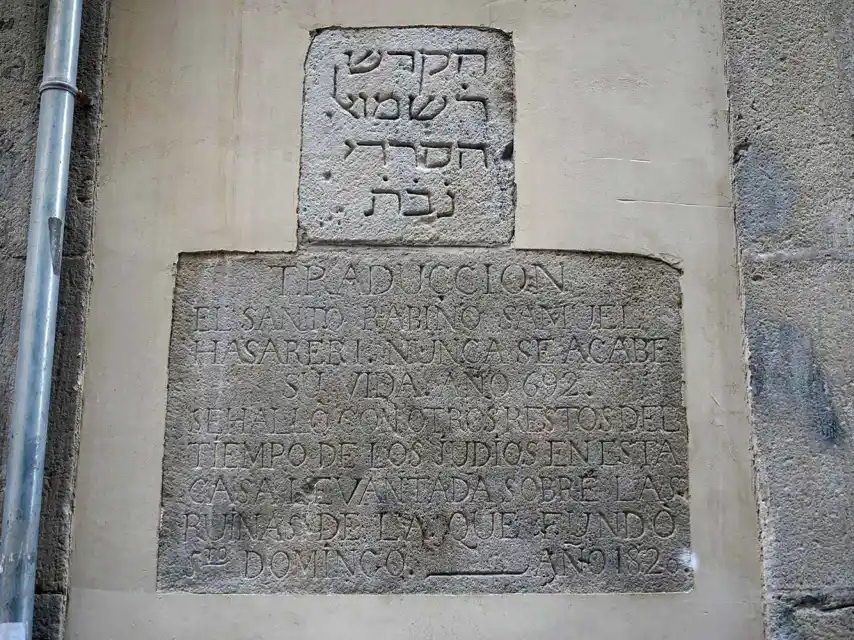 הקדש
ר שמואל
הסרדי
נבת
TRADUCCION
EL SANTO RABINO SAMUEL
HASARERI. NUNCA SE ACABE
SU VIDA. AÑO 692.
SE HALLO CON OTROS RESTOS DEL
TIEMPO DE LOS JUDIOS EN ESTA
CASA LEVANTADA SOBRE LAS
RUINAS DE LA QUE FUNDÓ
Sto DOMINGO. AÑO 1820